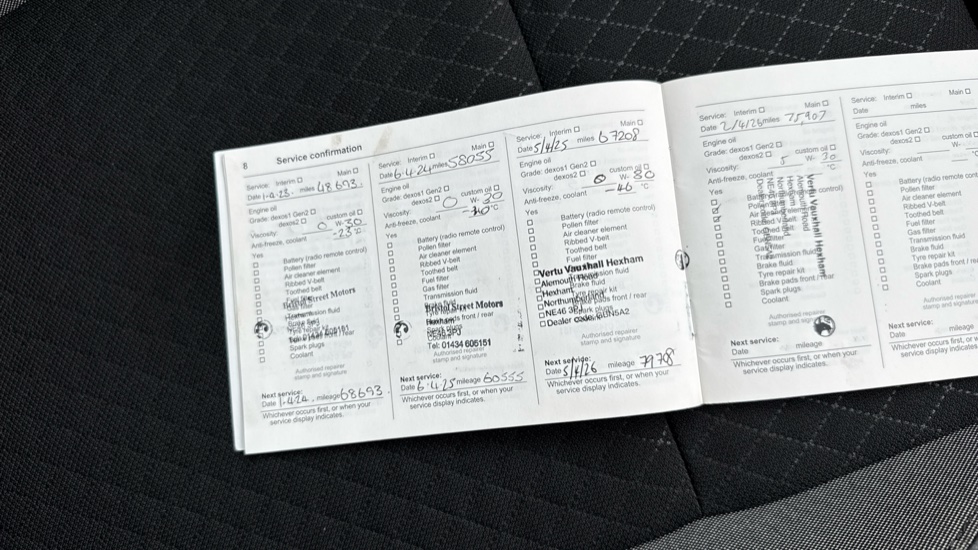 8 Service confirmation
Service: Interim Main
Date 1-4-23. miles 48693.
Engine oil
Grade: dexos1 Gen2 custom oil
dexos2
Viscosity: 0 W- 30
Anti-freeze, coolant -25 °C
Yes
Battery (radio remote control)
Pollen filter
Air cleaner element
Ribbed V-belt
Toothed belt
Bristol Street Motors
Tyre repair kit
Spark plugs
Coolant
Authorised repairer
stamp and signature
Next service:
Date 1-4-24. mileage 68693
Whichever occurs first, or when your
service display indicates.
Service: Interim Main
Date 6-4-24 miles 58055
Engine oil
Grade: dexos1 Gen2 custom oil
dexos2
Viscosity: 0 W- 30
Anti-freeze, coolant °C
Yes
Battery (radio remote control)
Pollen filter
Air cleaner element
Ribbed V-belt
Toothed belt
Fuel filter
Gas filter
Transmission fluid
Bristol Street Motors
Hexham
Tel: 01434 605151
Authorised repairer
stamp and signature
Next service:
Date 6-4-25 mileage 60555
Whichever occurs first, or when your
service display indicates.
Service: Interim Main
Date 5/4/25 miles 67208
Engine oil
Grade: dexos1 Gen2 custom oil
dexos2
Viscosity: 0 W- 30
Anti-freeze, coolant -46 °C
Yes
Battery (radio remote control)
Pollen filter
Air cleaner element
Ribbed V-belt
Toothed belt
Fuel filter
Vertu Vauxhall Hexham
Alemouth Road
Hexham
Northumberland
NE46 3PJ
Dealer code:
Authorised repairer
stamp and signature
Next service:
Date 5/4/26 mileage 79708
Whichever occurs first, or when your
service display indicates.
Service: Interim Main
Date 2/4/26 miles 75,907
Engine oil
Grade: dexos1 Gen2 custom oil
dexos2
Viscosity: 5 W- 30
Anti-freeze, coolant °C
Yes
Vertu Vauxhall Hexham
Alemouth Road
Hexham
Northumberland
Transmission fluid
Brake fluid
Tyre repair kit
Brake pads front / rear
Spark plugs
Coolant
Authorised repairer
stamp and signature
Next service:
Date mileage
Whichever occurs first, or when your
service display indicates.
Service: Interim Main
Date miles
Engine oil
Grade: dexos1 Gen2 custom oil
dexos2
Viscosity: W-
Anti-freeze, coolant
Yes
Battery (radio remote cont
Pollen filter
Air cleaner element
Ribbed V-belt
Toothed belt
Fuel filter
Gas filter
Transmission fluid
Brake fluid
Tyre repair kit
Brake pads front / re
Spark plugs
Coolant
Authorised
stamp and
Next service:
Date mileage
Whichever occurs first, or w
service display indicates.